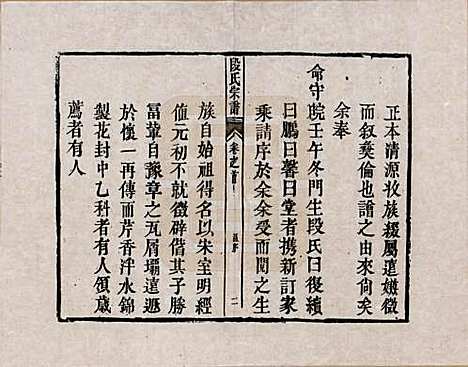 正本清源收族綴屬遠嫌微
而叙彜倫也譜之由來尚矣
余奉
命守皖壬午冬門生段氏曰復續
曰鵬曰馨曰堂者携新訂家
乘請序於余余受而閱之生
段氏宗譜
卷之首
二
族自始祖得名以朱室明經
值元初不就徵辟偕其子勝
冨葦自豫章之瓦屑壩遠遯
於懷一再傳而芹香泮水錦
製花封中乙科者有人領歲
薦者有人